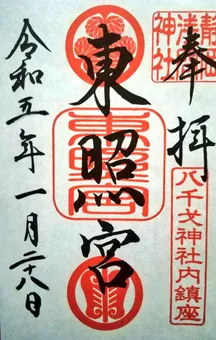 奉拝
静岡
浅間
神社
八千戈神社内鎮座
東照宮
東照宮
令和五年一月二十八日